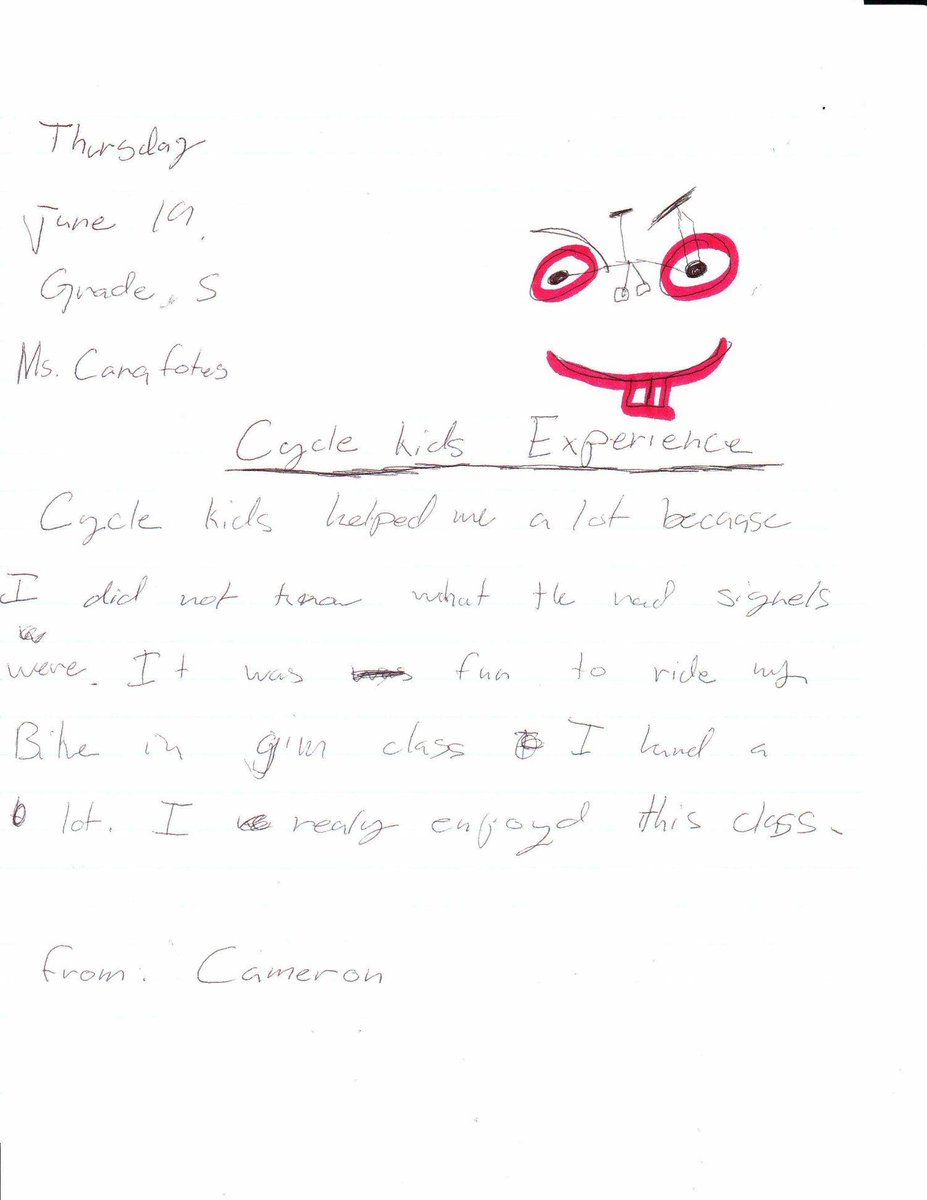 Thursday
June 19.
Grade. 5
Ms.
Cycle kids Experience
Cycle kids helped me a lot because
I did not know what the signels
were. It was fun to ride my
Bike in gim class I a
lot. I realy enjoyd this class.
from: Cameron